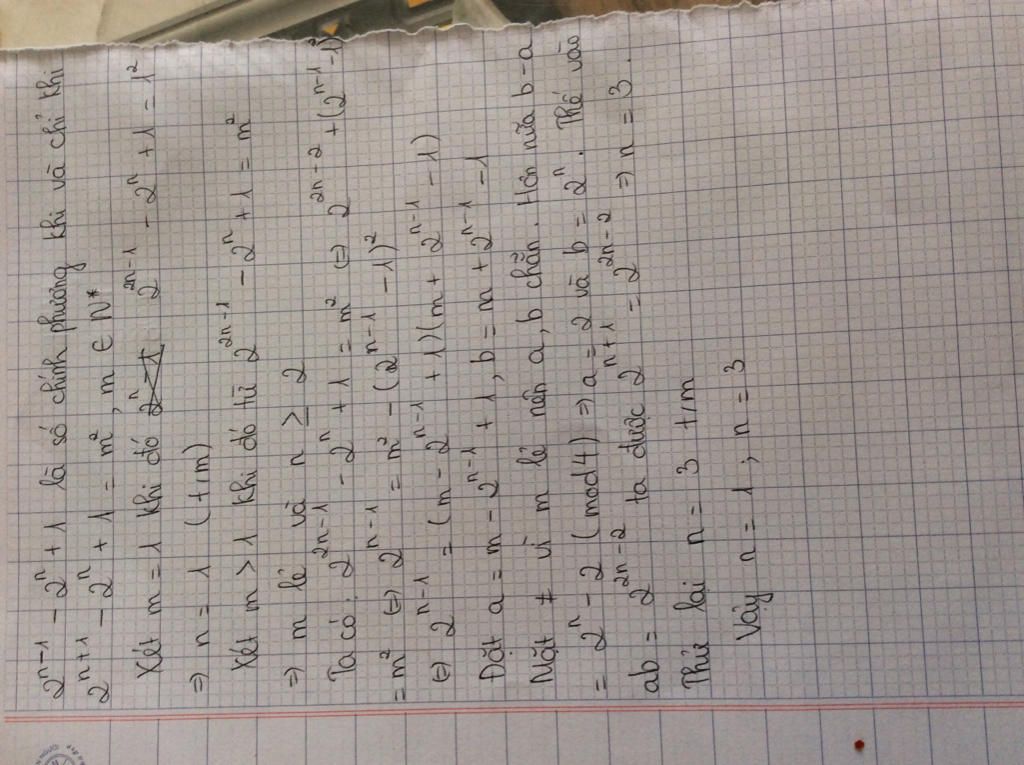 2^{n-1} - 2^n + 1 là số chính phương khi và chỉ khi
2^{n+1} - 2^n + 1 = m^2, m ∈ N*
Xét m = 1 khi đó 2^{2n-1} - 2^n + 1 = 1^2
⇒ n = 1 (t/m)
Xét m > 1 khi đó từ 2^{2n-1} - 2^n + 1 = m^2
⇒ m lẻ và n ≥ 2
Ta có: 2^{2n-1} - 2^n + 1 = m^2 ⇔ 2^{2n-2} + (2^{n-1} - 1)^2
= m^2 ⇔ 2^{n-1} = m^2 - (2^{n-1} - 1)^2
⇔ 2^{n-1} = (m - 2^{n-1} + 1)(m + 2^{n-1} - 1)
Đặt a = m - 2^{n-1} + 1, b = m + 2^{n-1} - 1
Mặt ≠ vì m lẻ nên a, b chẵn. Hơn nữa b - a
= 2^n - 2 (mod 4) ⇒ a = 2 và b = 2^n. Thế vào
ab = 2^{2n-2} ta được 2^{n+1} = 2^{2n-2} ⇒ n = 3.
Thử lại n = 3 t/m
Vậy n = 1; n = 3